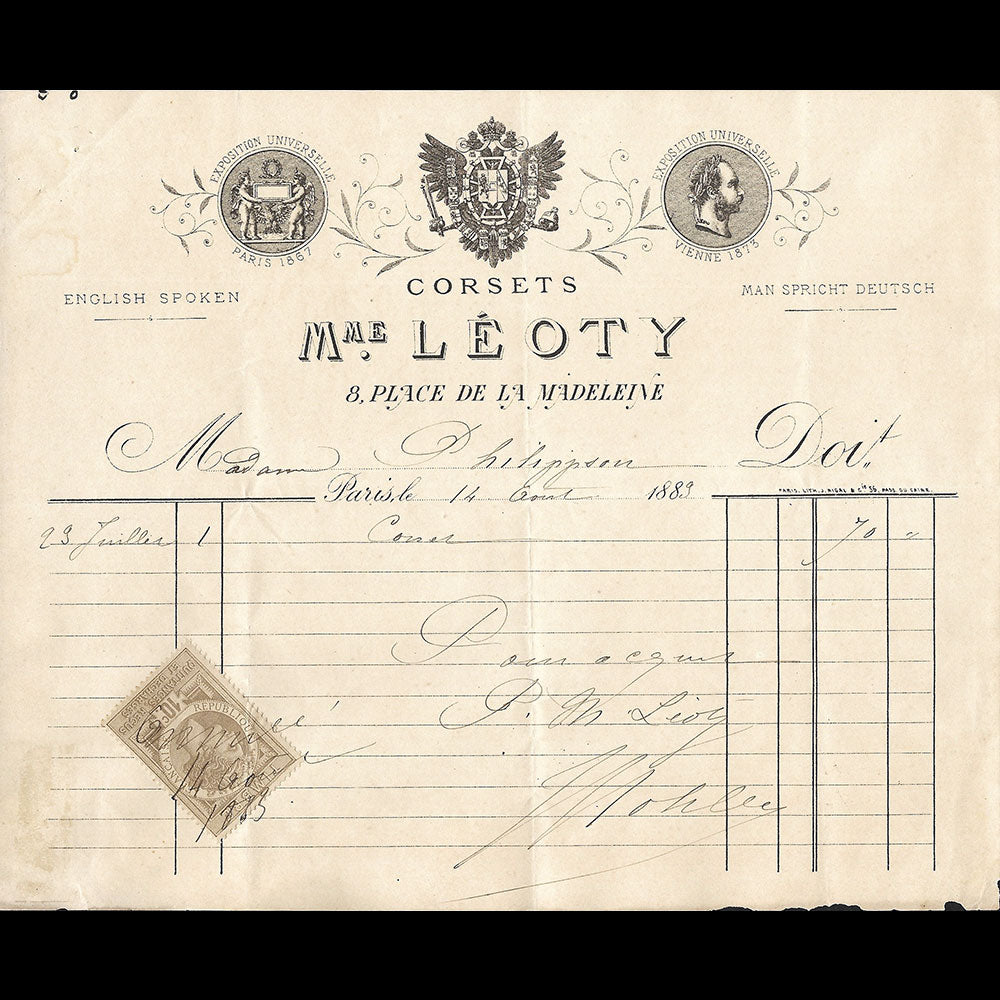 EXPOSITION UNIVERSELLE
PARIS 1867
EXPOSITION UNIVERSELLE
VIENNE 1873
CORSETS
ENGLISH SPOKEN
MAN SPRICHT DEUTSCH
MME. LÉOTY
8, PLACE DE LA MADELEINE
Madame Philippson Doit
Paris, le 14 Aout 1883
PARIS. LITH. J. RIGAL & Cie 56, PASS. DU CAIRE.
23 Juillet 1 Corset 70 "
Pour acquit
P. Me Léoty
RÉPUBLIQUE
FRANÇAISE
10c
14 Aout
1883